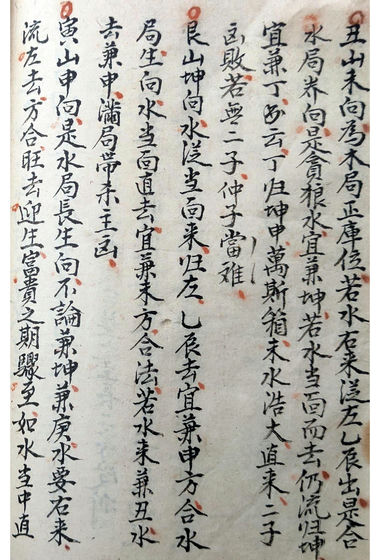 丑山未向為木局正庫位若水右来從左乙辰出是合
水局养向是貪狼水宜兼坤若水当面而去仍流归坤
宜兼丁多云丁归坤申萬斯箱未水浩大直来二子
凶败若無二子仲子當难
艮山坤向水從当面来归左乙辰去宜兼申方合水
局生向水当面直去宜兼未方合法若水来兼丑水
去兼申滿局帶杀主凶
寅山申向是水局長生向不論兼坤兼庚水要右来
流左去方合旺去迎生富貴之期驟至如水当中直